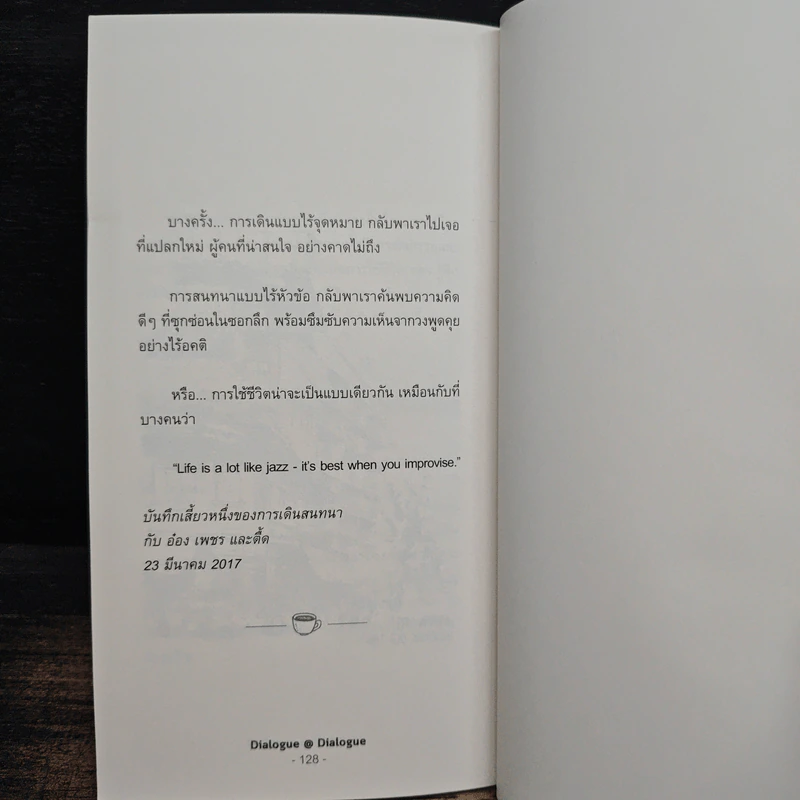 บางครั้ง... การเดินแบบไร้จุดหมาย กลับพาเราไปเจอ
ที่แปลกใหม่ ผู้คนที่น่าสนใจ อย่างคาดไม่ถึง
การสนทนาแบบไร้หัวข้อ กลับพาเราค้นพบความคิด
ดีๆ ที่ซุกซ่อนในซอกลึก พร้อมซึมซับความเห็นจากวงพูดคุย
อย่างไร้อคติ
หรือ... การใช้ชีวิตน่าจะเป็นแบบเดียวกัน เหมือนกับที่
บางคนว่า
“Life is a lot like jazz - it's best when you improvise.”
บันทึกเสี้ยวหนึ่งของการเดินสนทนา
กับ อ๋อง เพชร และตี้ด
23 มีนาคม 2017
Dialogue @ Dialogue
- 128 -